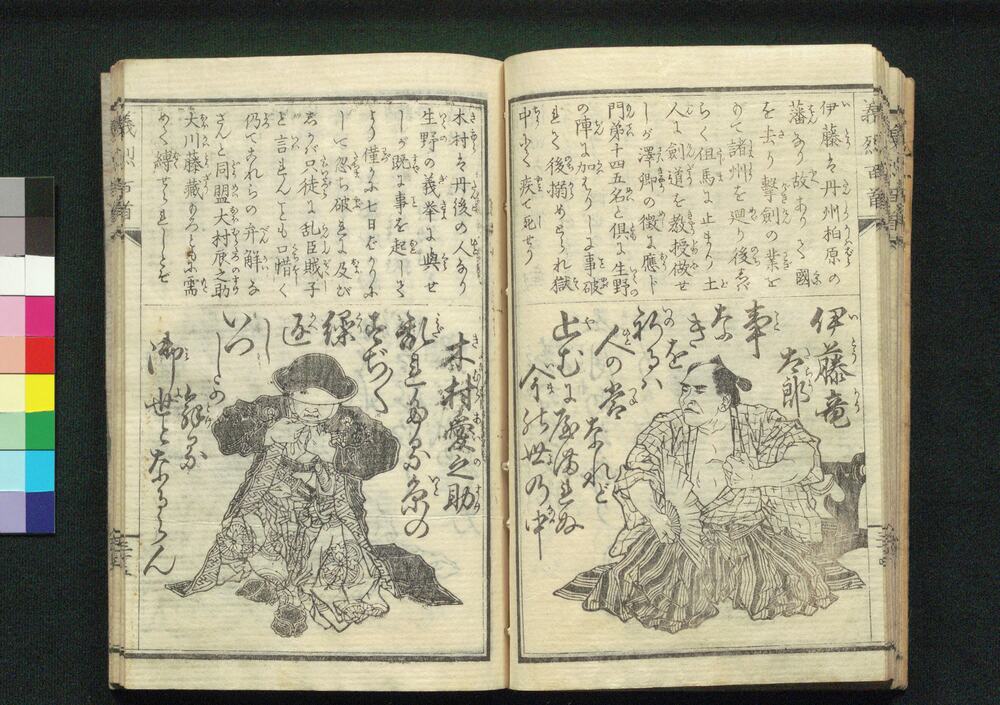 義烈百首
伊藤は丹州柏原の
藩なり故あつて國
を去り撃劍の業を
以て諸州を廻り後志ば
らく但馬に止まり土
人に劍道を教授做せ
しが澤卿の徴に應じ
門弟十四五名と倶に生野
の陣に加はりしに事破
れて後搦められ獄
中にて疾で死せり
伊藤竜
太郎
事
なき
を
祈るハ
人の常
なれど
止むに
今の世の中
木村は丹後の人なり
生野の義挙に與せ
しが既に事を起してよ
より僅かに七日ばかりに
して忽ち破れに及び
君が只徒に乱臣賊子
と言れんことも口惜く
仍てこれらの弁解なさ
さんと同盟大村辰之助
大川藤藏
めて縛せられしとぞ
木村愛之助
乱れたる糸の
すぢ
繰
返し
いつ
しか
御世となるらん
義烈百首